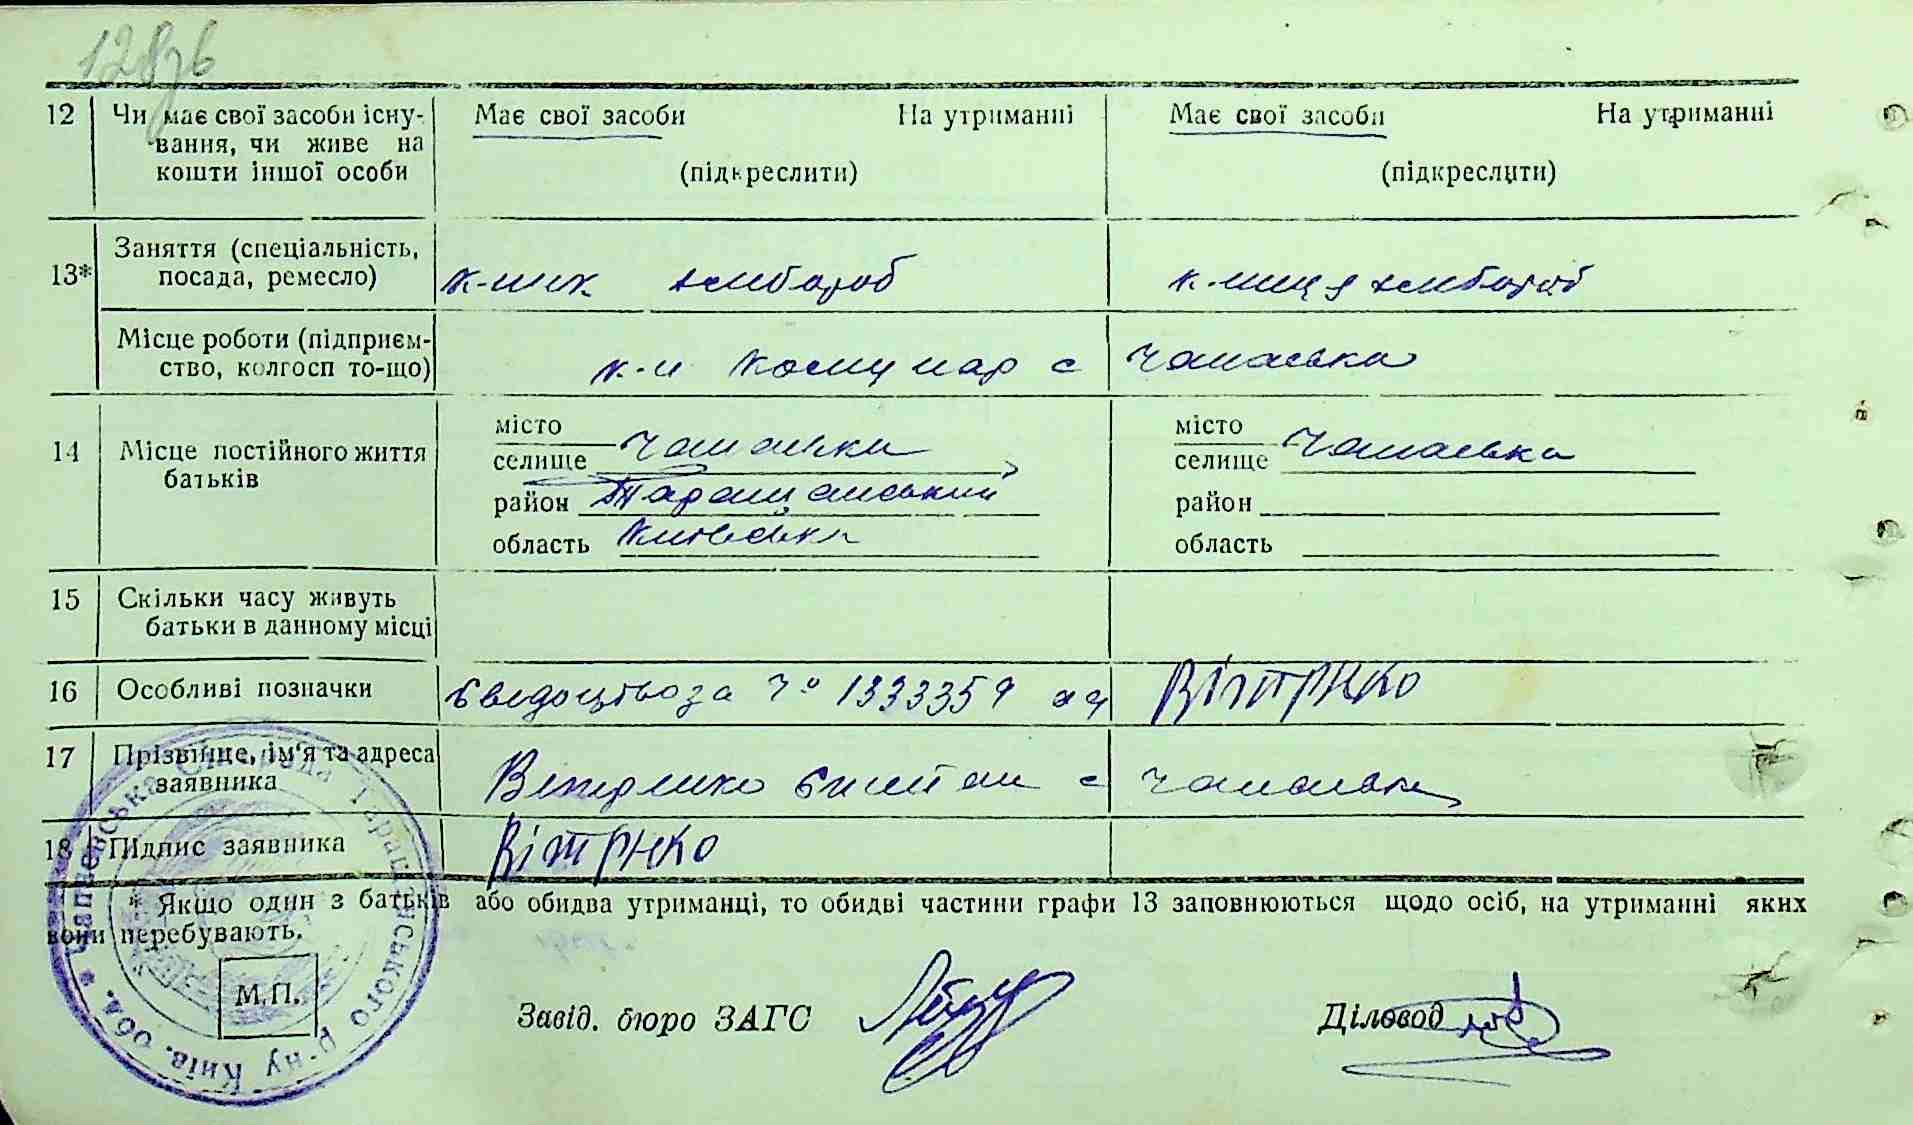 12 Чи має свої засоби існу- Має свої засоби На утриманні Має свої засоби На утриманні
вання, чи живе на
кошти іншої особи (підкреслити) (підкреслити)
13* Заняття (спеціальність,
посада, ремесло) к-ник хлібороб к-ниця хлібороб
Місце роботи (підприєм-
ство, колгосп то-що) к-п Комунар с Чапаєвка
14 Місце постійного життя
батьків
місто
селище Чапаєвка
район Таращанський
область Київська
місто
селище Чапаєвка
район
область
15 Скільки часу живуть
батьки в данному місці
16 Особливі позначки Свідоцтво за № 1333359 Вітрнко
17 Прізвище, ім'я та адреса
заявника Вітренко Степан с Чапаєвка
18 Підпис заявника Вітрнко
* Якщо один з батьків або обидва утриманці, то обидві частини графи 13 заповнюються щодо осіб, на утриманні яких
вони перебувають.
М.П.
Завід. бюро ЗАГС Діловод
Таращанського р-ну Київ. обл.